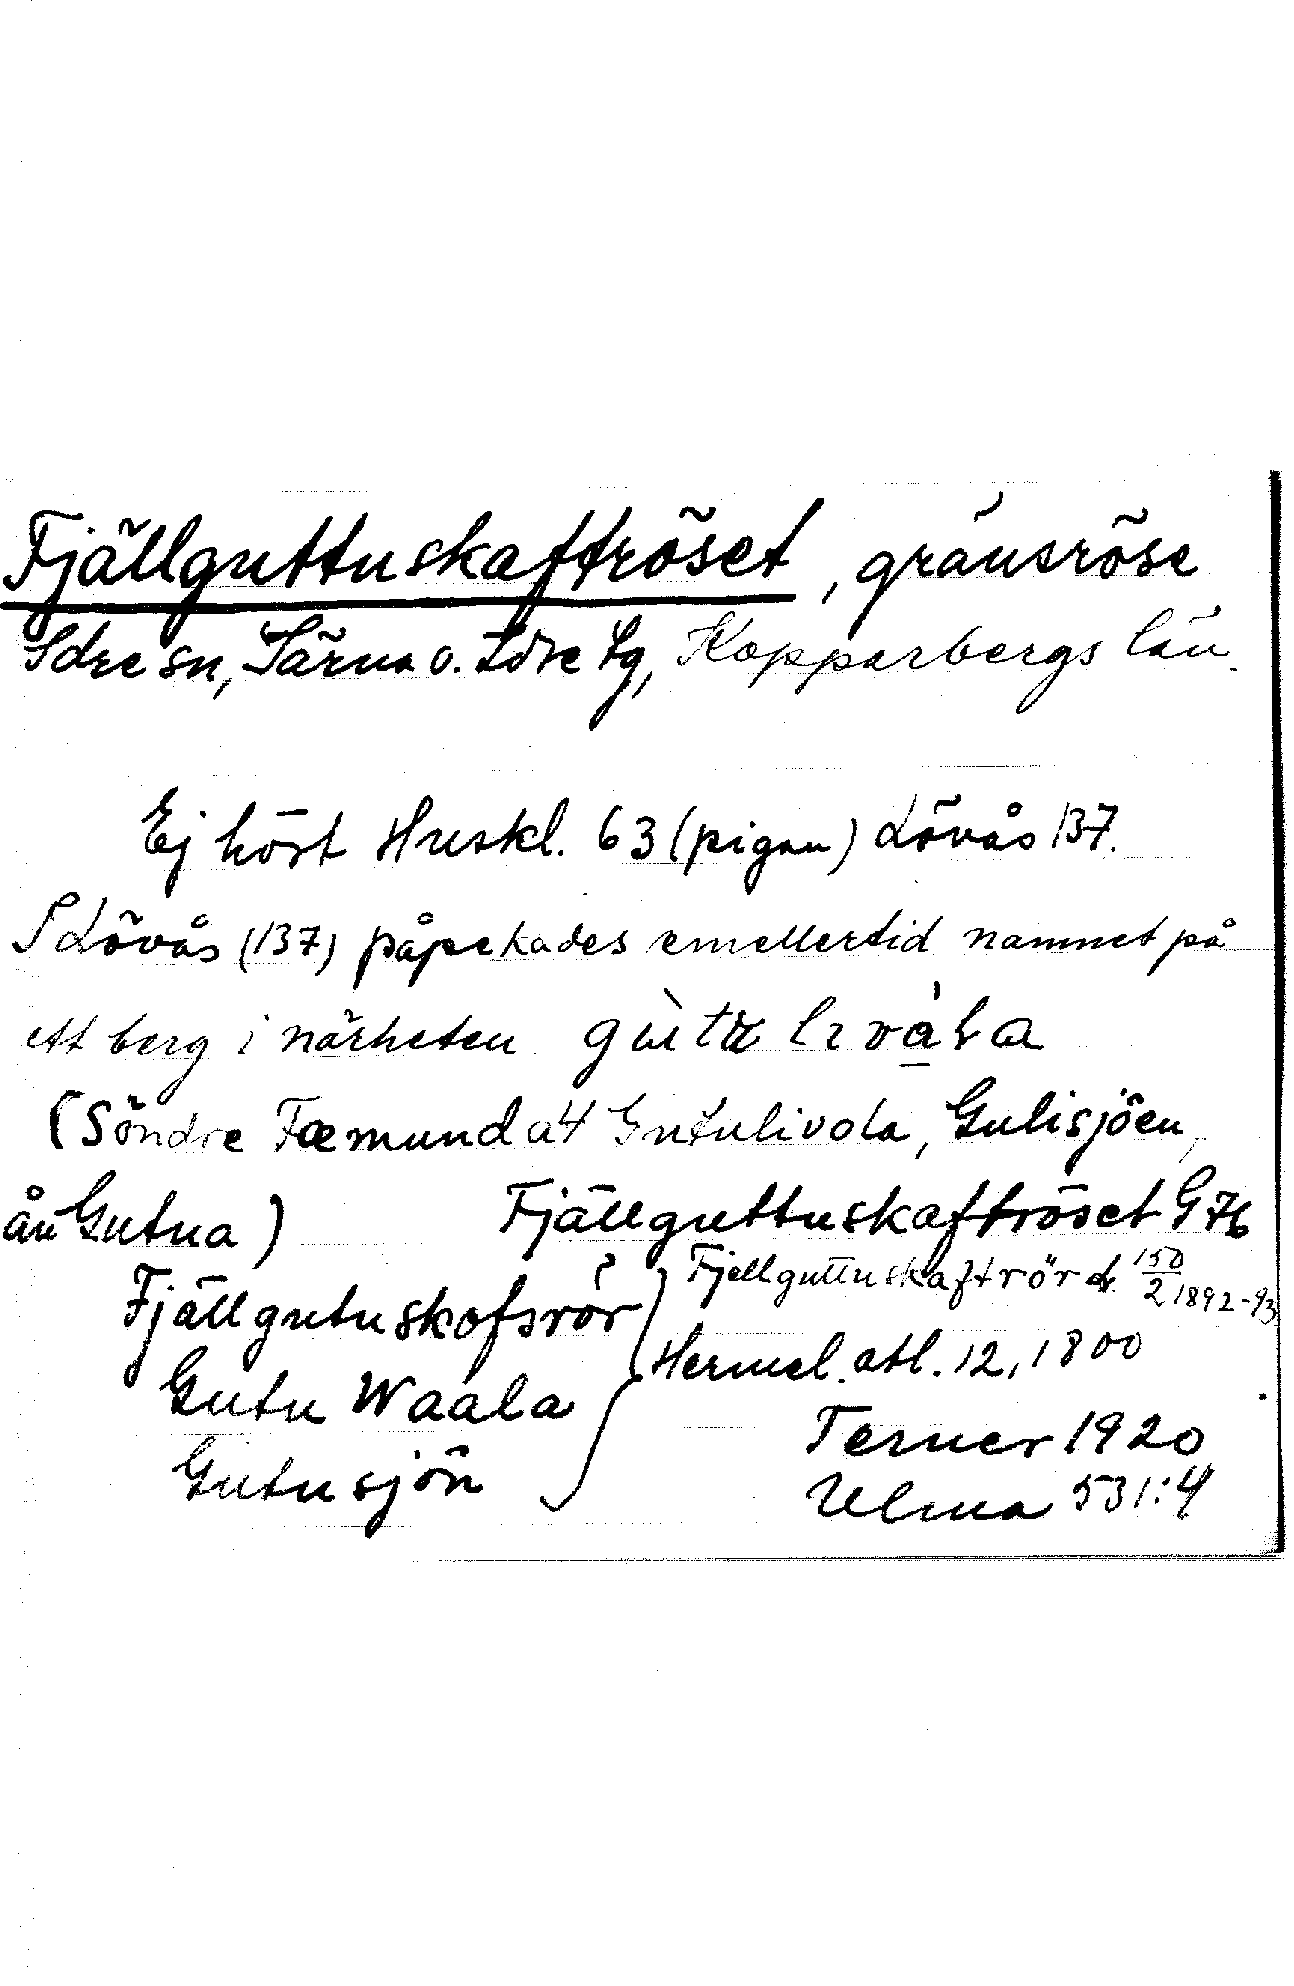 Fjällguttuskaftröset, gränsröse
Idre sn, Särna o. Idre tg, Kopparbergs län.
Ej hört Huskl. 63 (pigan) Lövås 137.
I Lövås (137) påpekades emellertid namnet på
ett berg i närheten
(Söndre Fæmund a4 Gutulivola, Gulisjöen,
ån Gutua) Fjällguttuskaftröset G 76
Fjällgutuskofsrör } Fjellguttuskaftrör dr. 150/2 1892-93
Gutu Waala } Hermel. atl. 12, 1800
Gutusjön
Terner 1920
Ulma 531:4